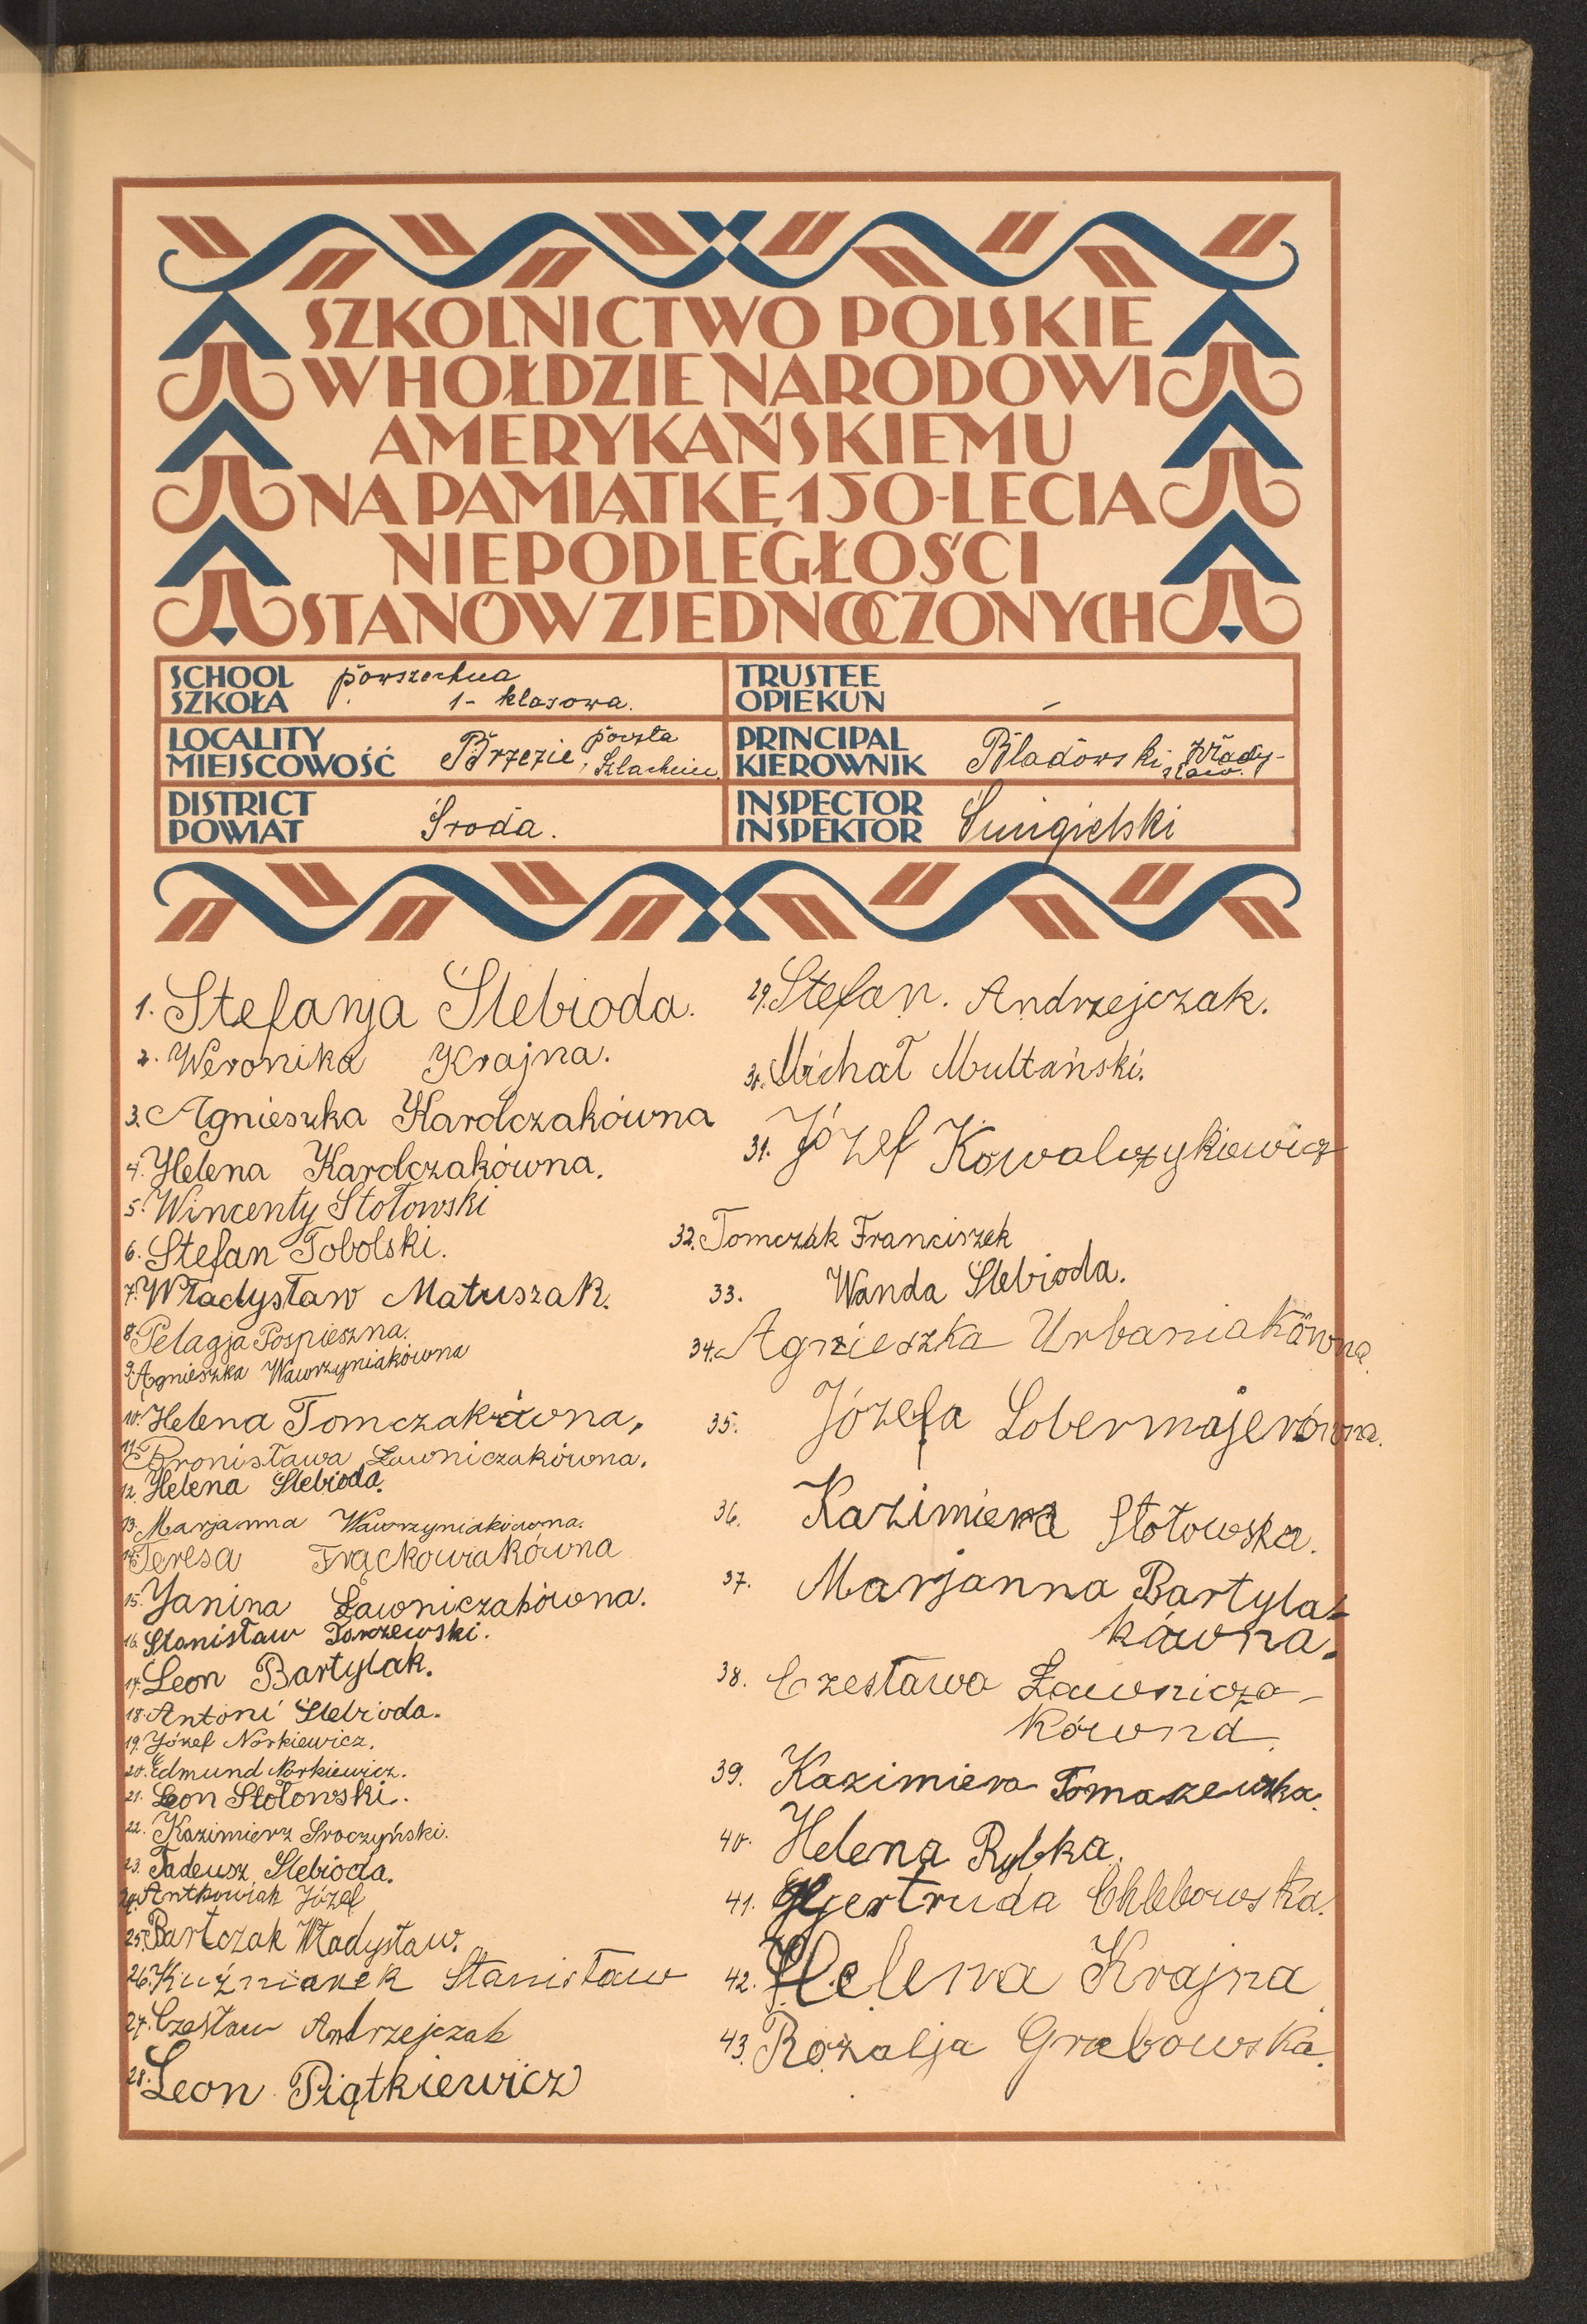 SZKOLNICTWO POLSKIE
W HOŁDZIE NARODOWI
AMERYKAŃSKIEMU
NA PAMIĄTKĘ 150-LECIA
NIEPODLEGŁOŚCI
STANÓW ZJEDNOCZONYCH
SCHOOL
SZKOŁA
powszechna
1- klasowa.
TRUSTEE
OPIEKUN
–
LOCALITY
MIEJSCOWOŚĆ
Brzezie, poczta
PRINCIPAL
KIEROWNIK
Bladowski Włady-
sław.
DISTRICT
POWIAT
Środa.
INSPECTOR
INSPEKTOR
Śmigielski
1. Stefanja Ślebioda.
2. Weronika Krajna.
3. Agnieszka Karolczakówna
4. Helena Karolczakówna.
5. Wincenty Stołowski
6. Stefan Tobolski.
7. Władysław Matuszak.
8. Pelagja Pospieszna.
9. Agnieszka Wawrzyniakówna
10. Helena Tomczakówna.
11. Bronisława Ławniczakówna.
12. Helena Ślebioda.
13. Marjanna Wawrzyniakówna.
14. Teresa Frąckowiakówna
15. Janina Ławniczakówna.
16. Stanisław Torzewski.
17. Leon Bartylak.
18. Antoni Ślebioda.
19. Józef Norkiewicz.
20. Edmund Norkiewicz.
21. Leon Stołowski.
22. Kazimierz Sroczyński.
23. Tadeusz Ślebioda.
24. Antkowiak Józef
25. Bartczak Władysław.
26. Kuźniarek Stanisław
27. Czesław Andrzejczak
28. Leon Piątkiewicz
29. Stefan. Andrzejczak.
30. Michał Multański.
31. Józef Kowalczykiewicz
32. Tomczak Franciszek
33. Wanda Ślebioda.
34. Agnieszka Urbaniakówna.
35. Józefa Lobermajerówna.
36. Kazimiera Stołowska.
37. Marjanna Bartyla-
kówna.
38. Czesława Ławnicza-
kówna.
39. Kazimiera Tomaszewska.
40. Helena Rybka.
41. Gjertruda Chlebowska.
42. Helena Krajna.
43. Rozalja Grabowska.